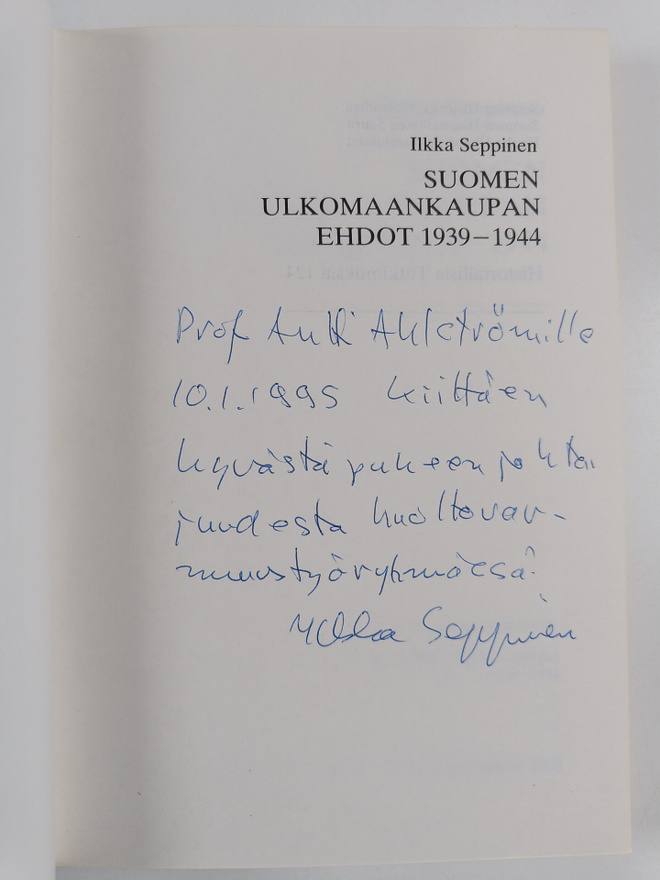 Ilkka Seppinen
SUOMEN
ULKOMAANKAUPAN
EHDOT 1939–1944
Historiallisia Tutkimuksia 124
Prof Antti Ahlströmille
10.1.1995 kiittäen
hyvästä puheenjohta-
juudesta huoltovar-
muustyöryhmässä.
Ilkka Seppinen